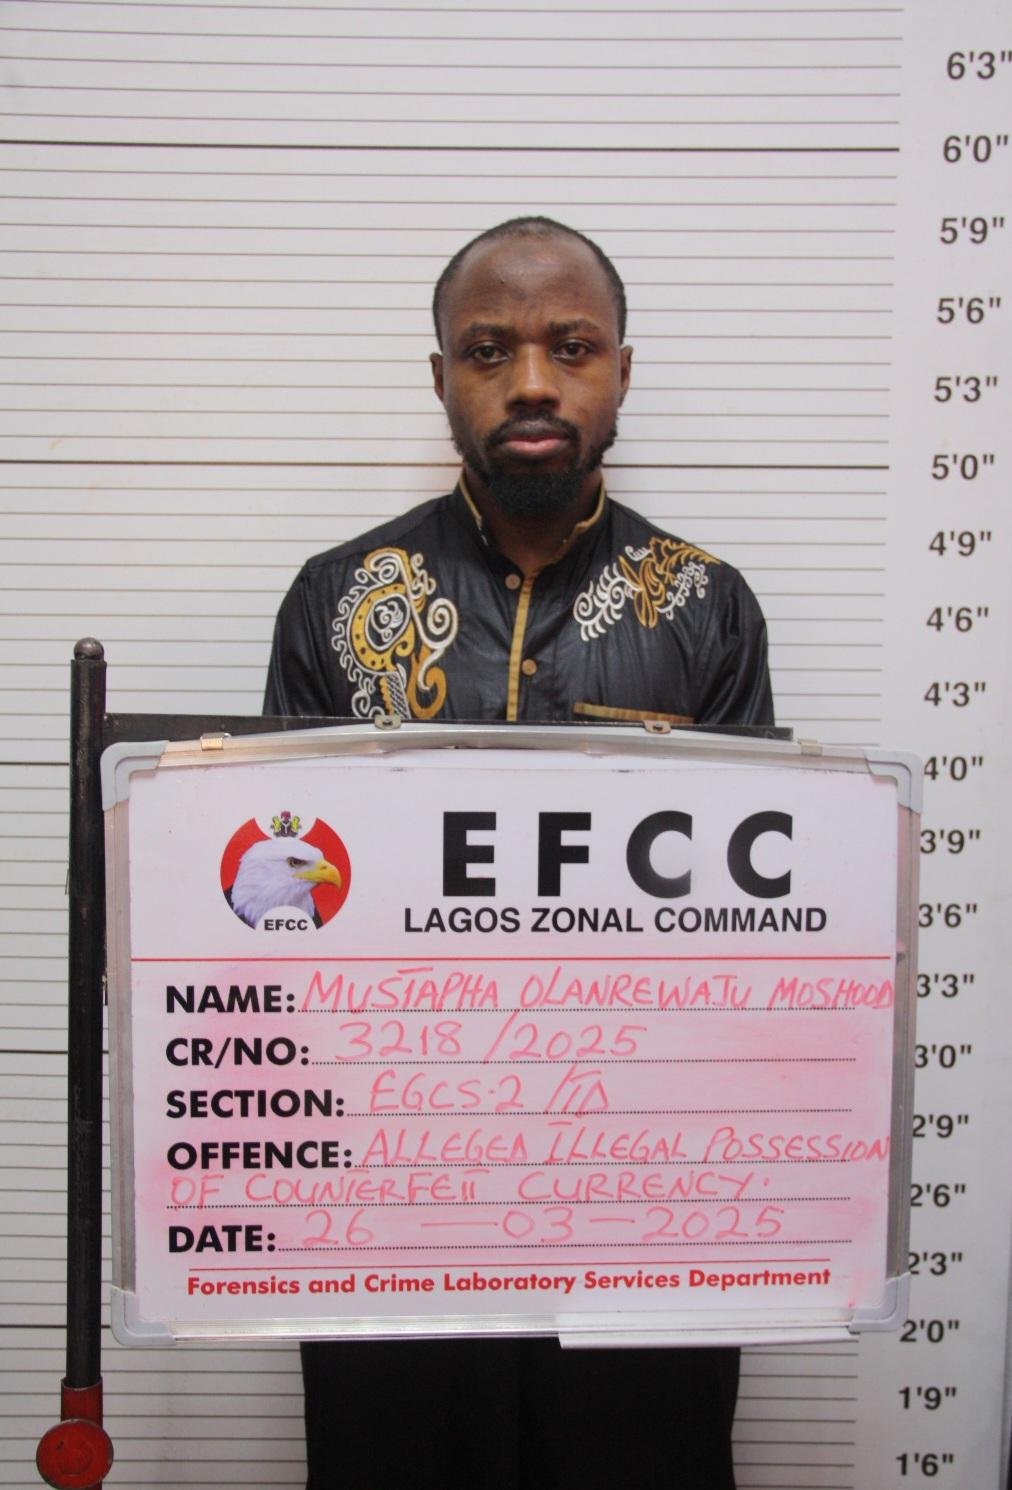 6'3"
6'0"
5'9"
5'6"
5'3"
5'0"
4'9"
4'6"
4'3"
4'0"
3'9"
3'6"
3'3"
3'0"
2'9"
2'6"
2'3"
2'0"
1'9"
1'6"
EFCC
EFCC
LAGOS ZONAL COMMAND
NAME: MUSTAPHA OLANREWAJU MOSHOOD
CR/NO: 3218/2025
SECTION: EGCS-2/TD
OFFENCE: ALLEGED ILLEGAL POSSESSION
OF COUNTERFEIT CURRENCY.
DATE: 26-03-2025
Forensics and Crime Laboratory Services Department